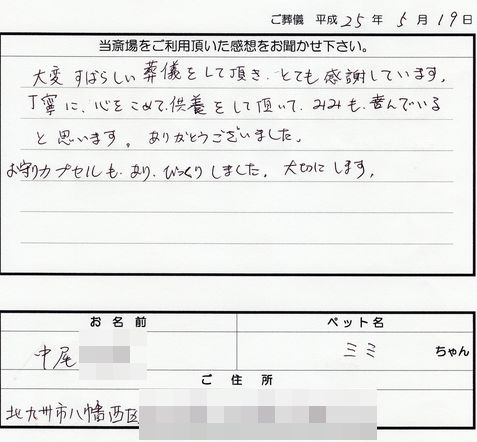 ご葬儀 平成 25 年 5 月 19 日
当斎場をご利用頂いた感想をお聞かせ下さい。
大変すばらしい葬儀をして頂き、とても感謝しています。
丁寧に、心をこめて、供養をして頂いて、みみも、喜んでいる
と思います。ありがとうございました。
お守りカプセルも、あり、びっくりしました。大切にします。
お名前 ペット名
中尾 ミミ ちゃん
ご住所
北九州市八幡西区